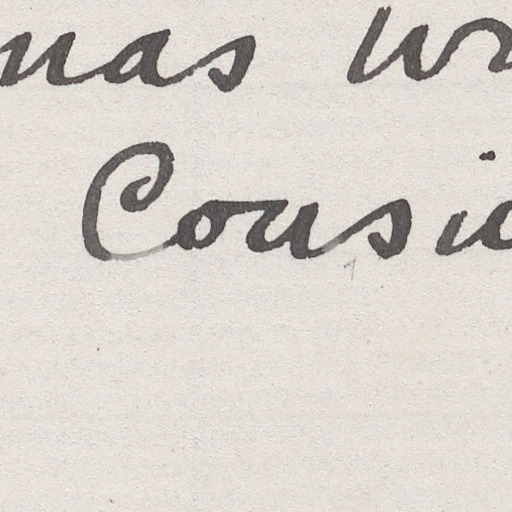 mas Wr
Cousi